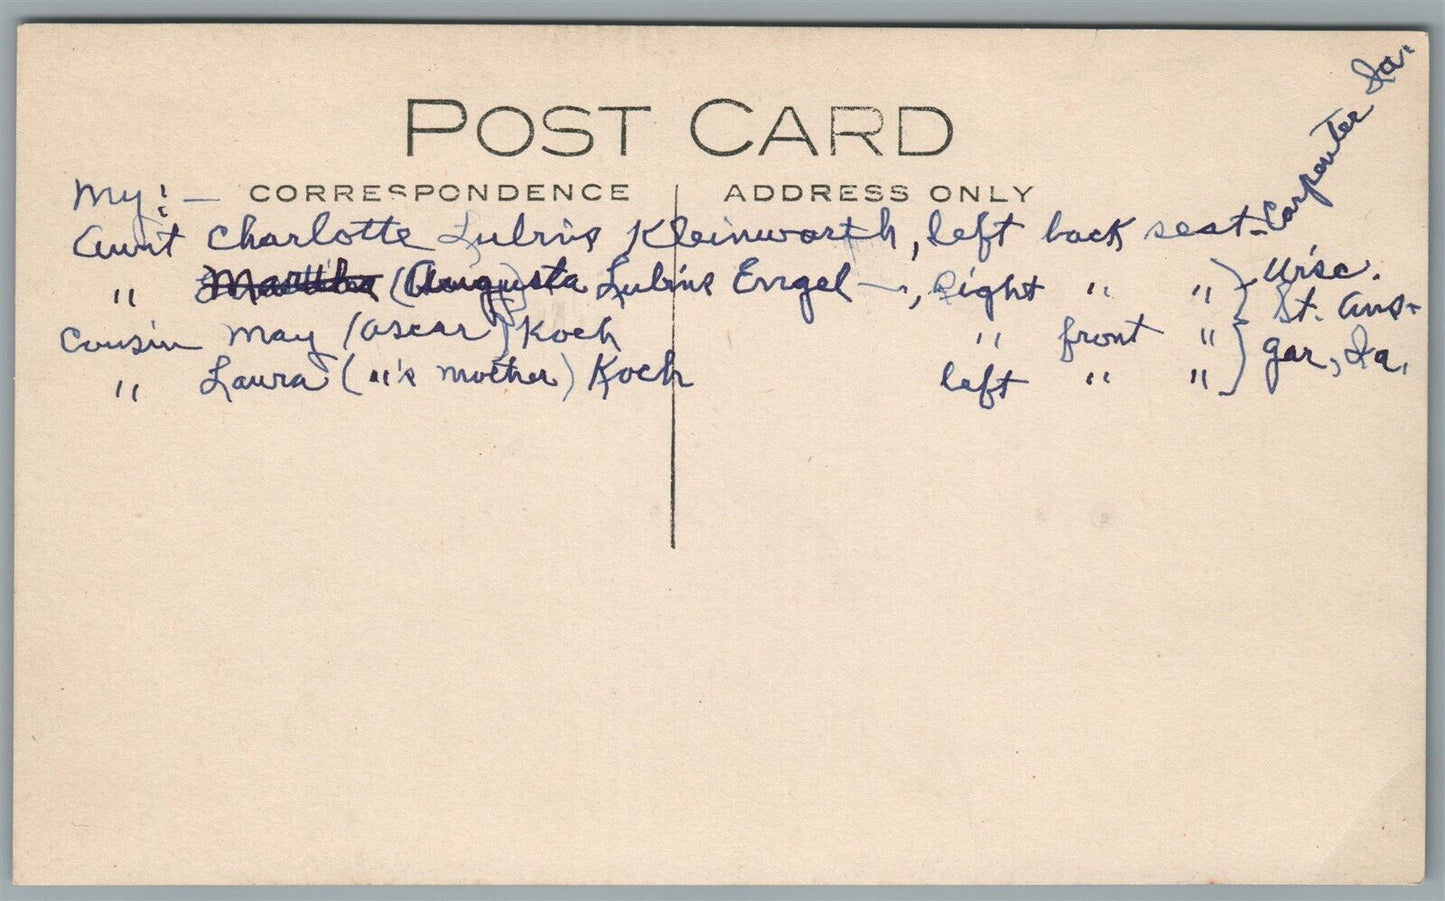 POST CARD
CORRESPONDENCE ADDRESS ONLY
My: —
Aunt Charlotte Lubrins Kleinworth, left back seat - Carpenter Ia.
" (Augusta Lubins Engel —, Right " " } Wisc.
Cousin May (Oscar) Koch " front " } St. Ans-
" Laura ("'s mother) Koch left " " } gar, Ia.